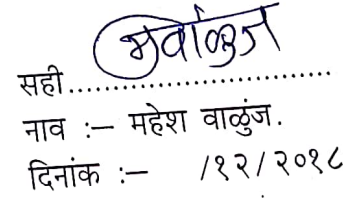 सही..............................
नाव :— महेश वाळुंज.
दिनांक :— /१२/२०१८